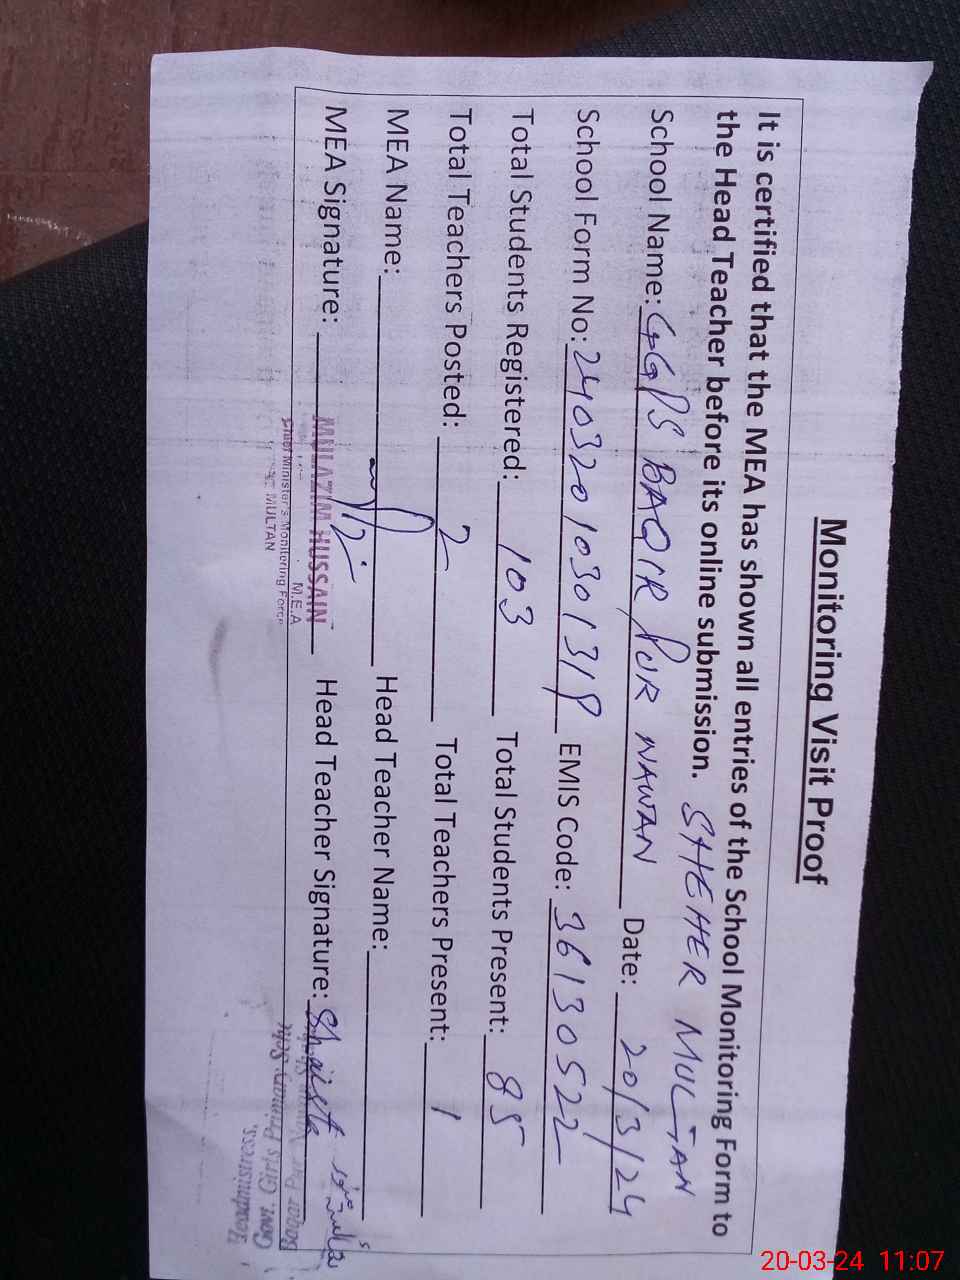 Monitoring Visit Proof
It is certified that the MEA has shown all entries of the School Monitoring Form to
the Head Teacher before its online submission. SHEHER MULTAN
School Name: GGPS BAQIR PUR NAWAN Date: 20/3/24
School Form No: 2403201030131P EMIS Code: 36130522
Total Students Registered: 103 Total Students Present: 85
Total Teachers Posted: 2 Total Teachers Present: 1
MEA Name: Head Teacher Name:
MEA Signature: Head Teacher Signature: Shaista
MULAZIM HUSSAIN
M.E.A
Chief Minister's Monitoring Force
MULTAN
Headmistress,
Govt. Girls Primary
20-03-24 11:07